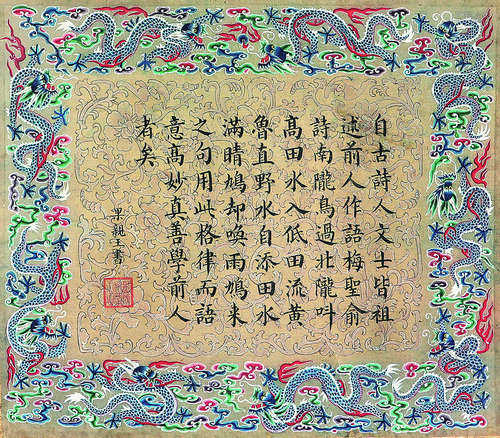 自古詩人文士皆祖
述前人作語梅聖俞
詩南隴鳥過北隴呌
高田水入低田流黄
魯直野水自添田水
滿晴鳩却喚雨鳩来
之句用此格律而語
意高妙真善學前人
者矣
果親王書